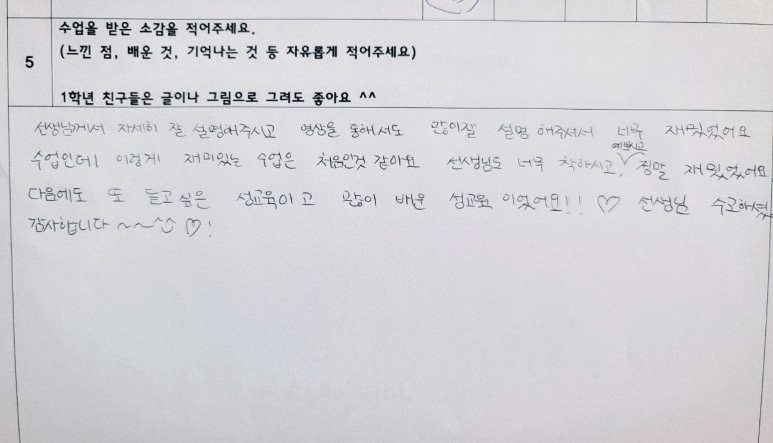 수업을 받은 소감을 적어주세요.
5
(느낀 점, 배운 것, 기억나는 것 등 자유롭게 적어주세요)
1학년 친구들은 글이나 그림으로 그려도 좋아요 ^^
선생님께서 자세히 잘 설명해주시고 영상을 통해서도 많이잘 설명 해주셔서 너무 재밌었어요
수업인데 이렇게 재미있는 수업은 처음인것 같아요 선생님도 너무 착하시고, 예쁘시고 정말 재밌었어요
다음에도 또 듣고 싶은 성교육이고 많이 배운 성교육 이었어요!! ♡ 선생님 수고하셨
감사합니다 ~~^^ ♡!